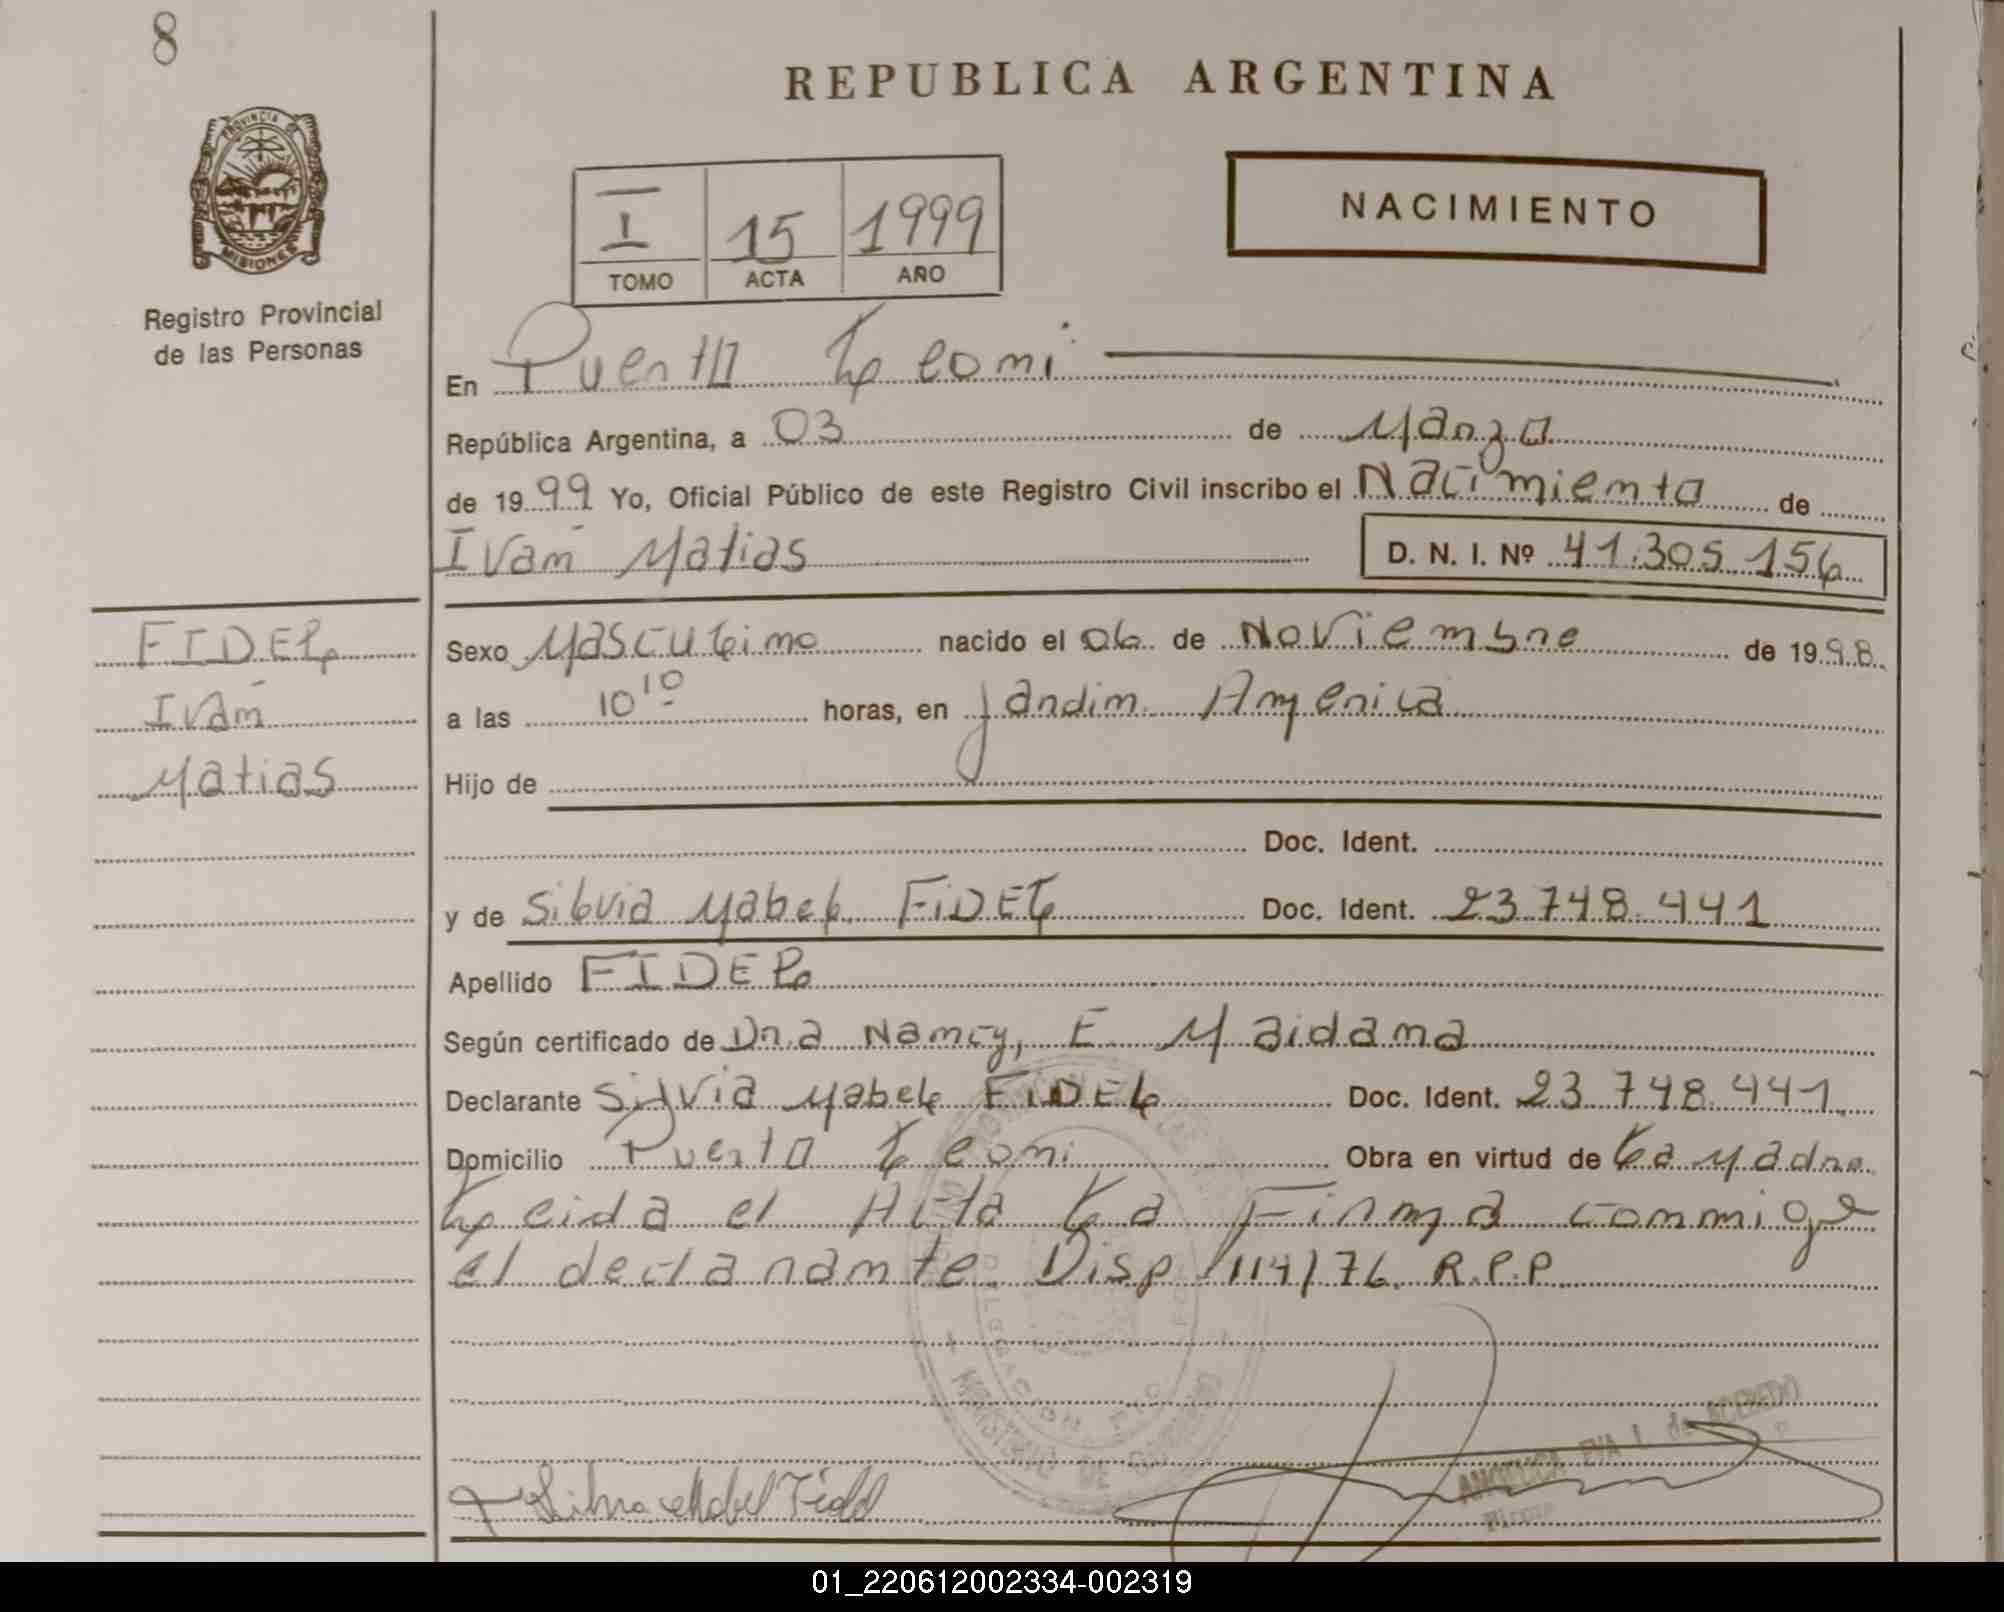 8
REPUBLICA ARGENTINA
PROVINCIA DE
MISIONES
Registro Provincial
de las Personas
I 15 1999
TOMO ACTA AÑO
NACIMIENTO
En Puerto Leoni
República Argentina, a 03 de Marzo
de 1999 Yo, Oficial Público de este Registro Civil inscribo el Nacimiento de
Iván Matias D. N. I. Nº 41.305.156
FIDEL
Iván
Matias
Sexo Masculino nacido el 06 de Noviembre de 1998
a las 10 10 horas, en Jardin America
Hijo de
Doc. Ident.
y de Silvia Mabel FiDEL Doc. Ident. 23.748.441
Apellido FIDEL
Según certificado de Dra Nancy, E Maidana
Declarante Silvia Mabel FiDEL Doc. Ident. 23.748.441
Domicilio Puerto Leoni Obra en virtud de La Madre
Leida el Acta La Firma conmigo
el declarante. Disp 114/76. R.P.P
MINISTERIO DE GOBIERNO
Silvia Mabel Fidel
ANGELICA EVA L. de ACEBEDO
01_220612002334-002319